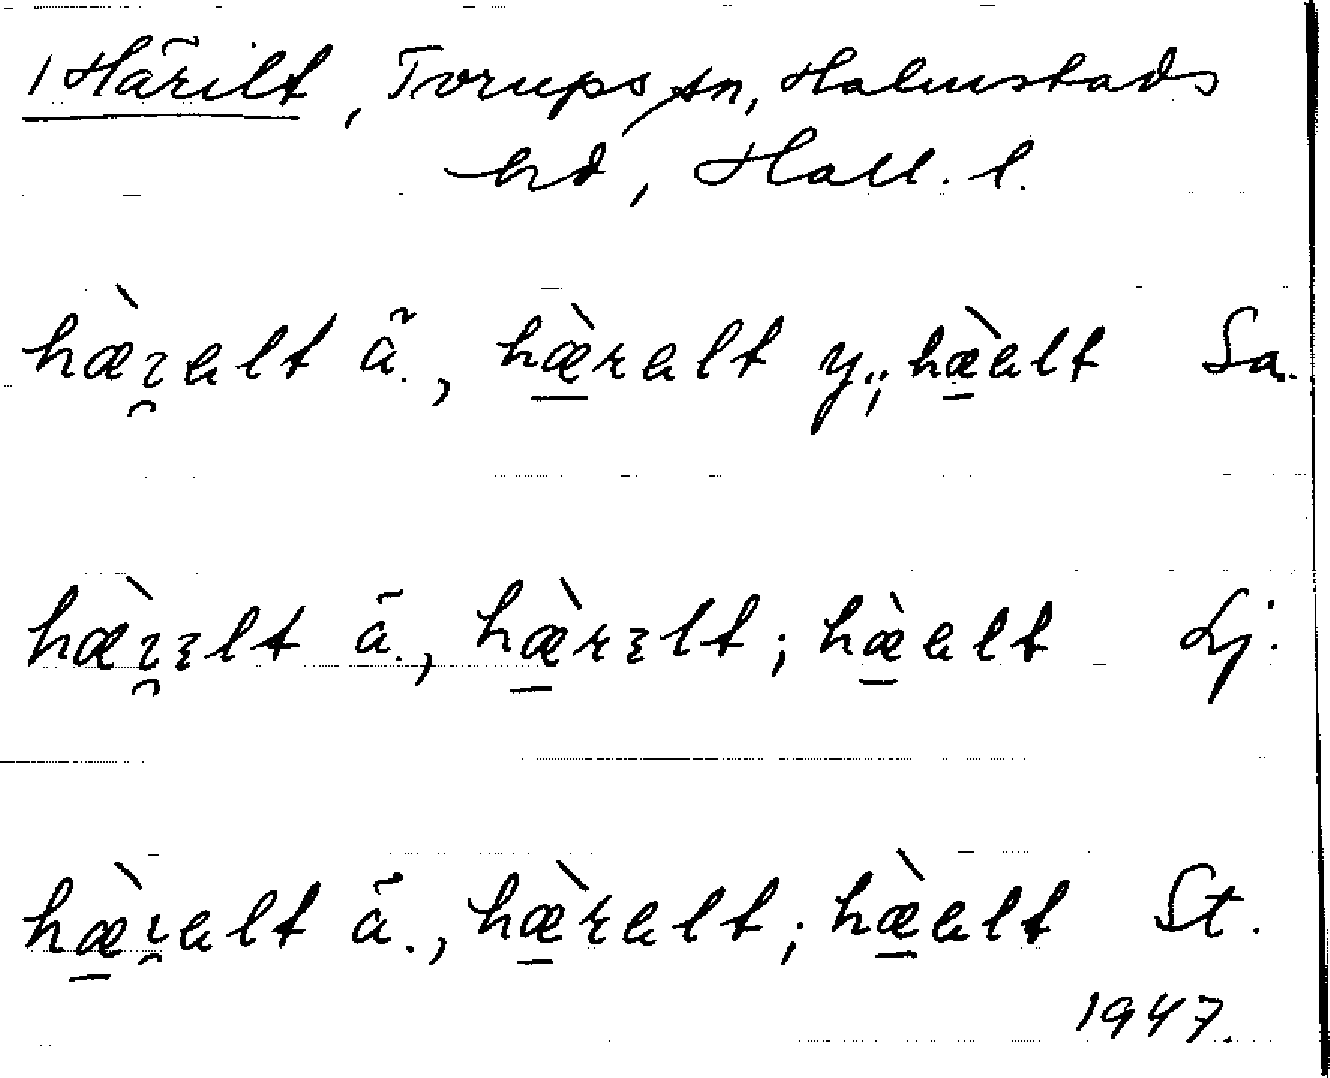 1 Härilt, Torups sn, Halmstads
hd, Hall. l.
hæ̀ꝛɐlt ä., hæ̠̀rɐlt y.; hæ̠̀ɐlt Sa.
hæ̀ꝛɛlt ä., hæ̠̀rɛlt; hæ̠̀ɐlt Lj.
hæ̠̀ꝛɐlt ä., hæ̠̀rɐlt; hæ̠̀ɐlt St.
1947.